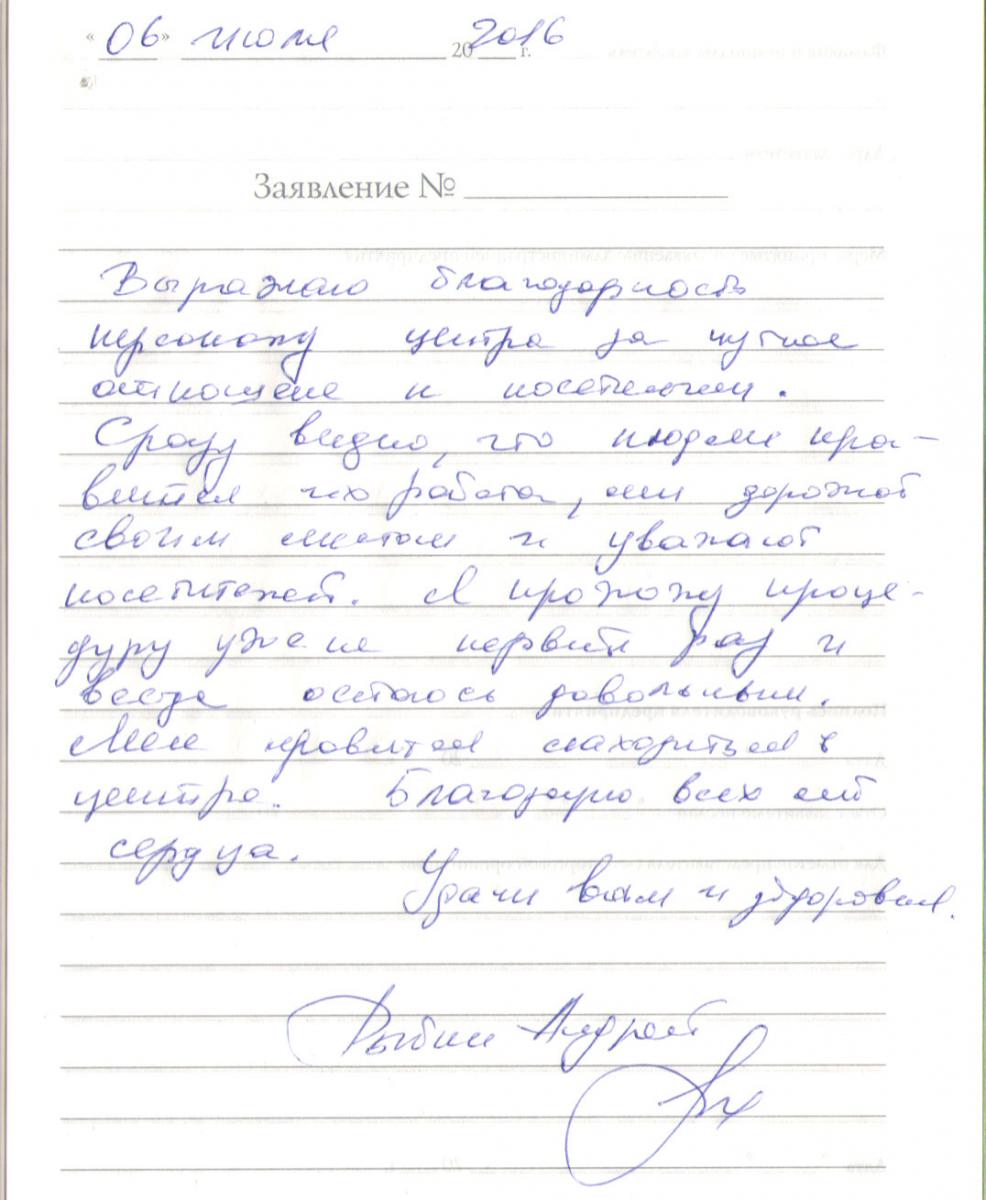 « 06 » июля 20 2016 г.
Заявление № 
Выражаю благодарность
персоналу центра за чуткое
отношение к посетителям.
Сразу видно, что людям нра-
вится их работа, они дорожат
своим местом и уважают
посетителей. Я прохожу проце-
дуру уже не первый раз и
всегда остаюсь довольным.
Мне нравится находиться в
центре. Благодарю всех от
сердца.
Удачи вам и здоровья.
Рыбин Андрей